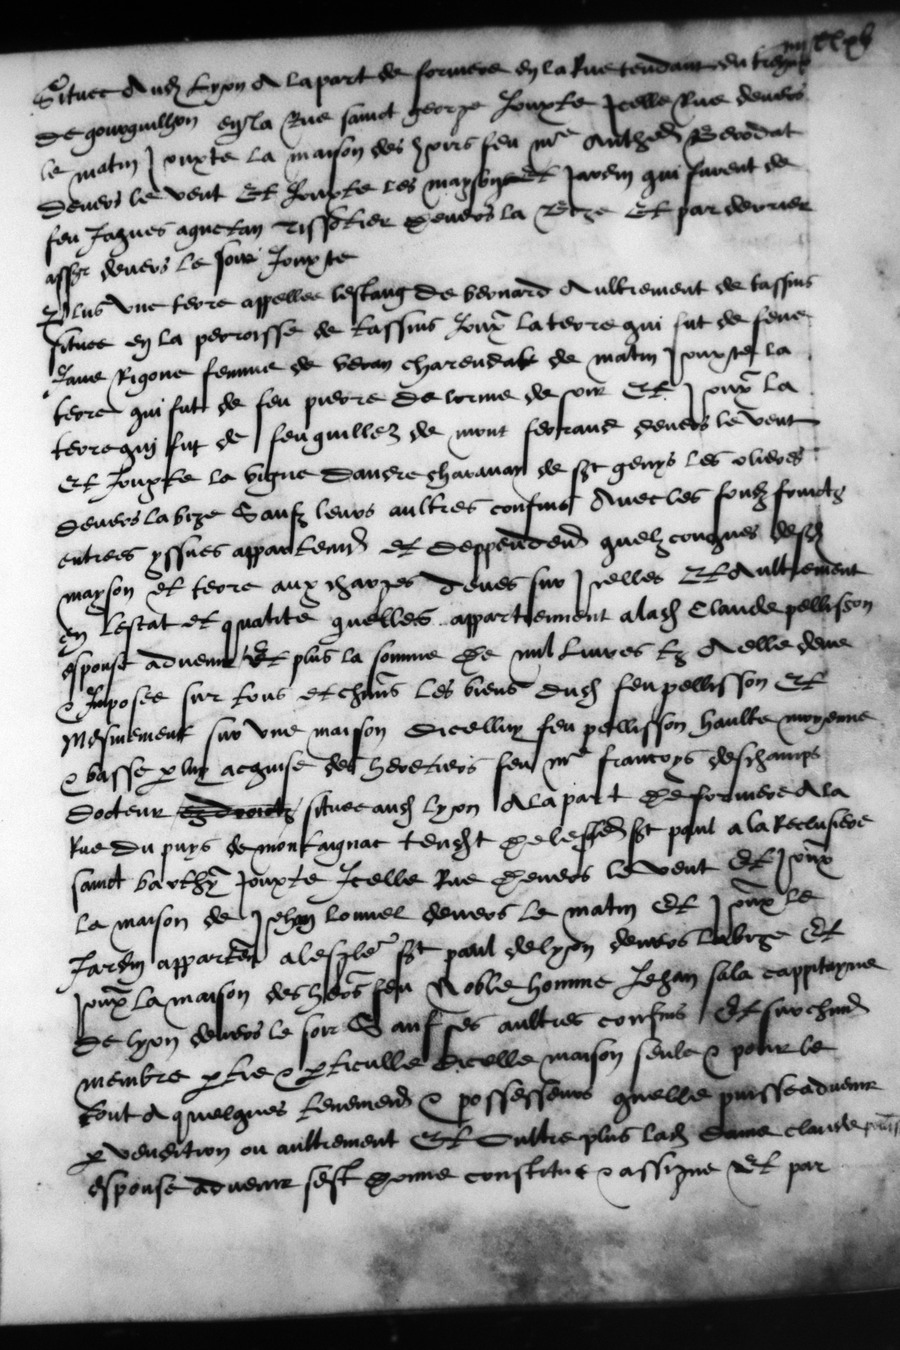 Situee Aud Lyon A la part de formere en la Rue tendant du
de gourguillon en la Rue sainct george Jouxte Icelle Rue devers
le matin Jouxte la maison des hoirs feu mre Anthe
devers le vent Et Jouxte les maysons Et Jardin qui furent de
feu Jaques Tissotier devers la Bize Et par derrier
devers le soir Jouxte
Plus Une terre appellee lestang de bernard Aultrement de tassins
situee en la perroisse de tassins Joux la terre qui fut de feue
Jane Rigone femme de veran de matin Jouxte la
terre qui fut de feu pierre De lorme de soir Et Joux la
terre qui fut de feu guillez de mont ferrand devers le vent
Et Jouxte la vigne dandre de st genys les olieres
Devers la bize Saufz leurs aultres confins Avec les fondz
entrees yssues appartend et deppendend quelzconques desd
mayson et terre aux charges deues sur Icelles Et Aultrement
En lestat et qualite quelles appartiennent a lad Claude pellisson
espouse advenir Et plus la somme De mil livres tz A elle deue
& Imposee sur tous et chuns les biens dud feu pellisson Et
Mesmement sur Une maison dicelluy feu pellisson haulte moyenne
& basse p luy acquise des heretiers feu mre francoys deschamps
docteur situee aud Lyon A la part De formere A la
Rue du puys de montaignac st paul a la Reclusiere
sainct barthy Jouxte Icelle Rue Devers le vent Et Joux
la maison de Jehan devers le matin Et Joux le
Jardin apparten a lesgle st paul de lyon devers la bize Et
Joux la maison des hers feu Noble homme Jehan sala cappitayne
De lyon devers le soir Sauf ses aultres confins Et sur chun
membre ptie & pticulle dicelle maison seule & pour le
tout A quelques tenemend & possesseurs quelle puisse advenir
p vendition ou aultrement Et Oultre plus lad dame claude
espouse advenir sest Donne constitue & assigne Et par